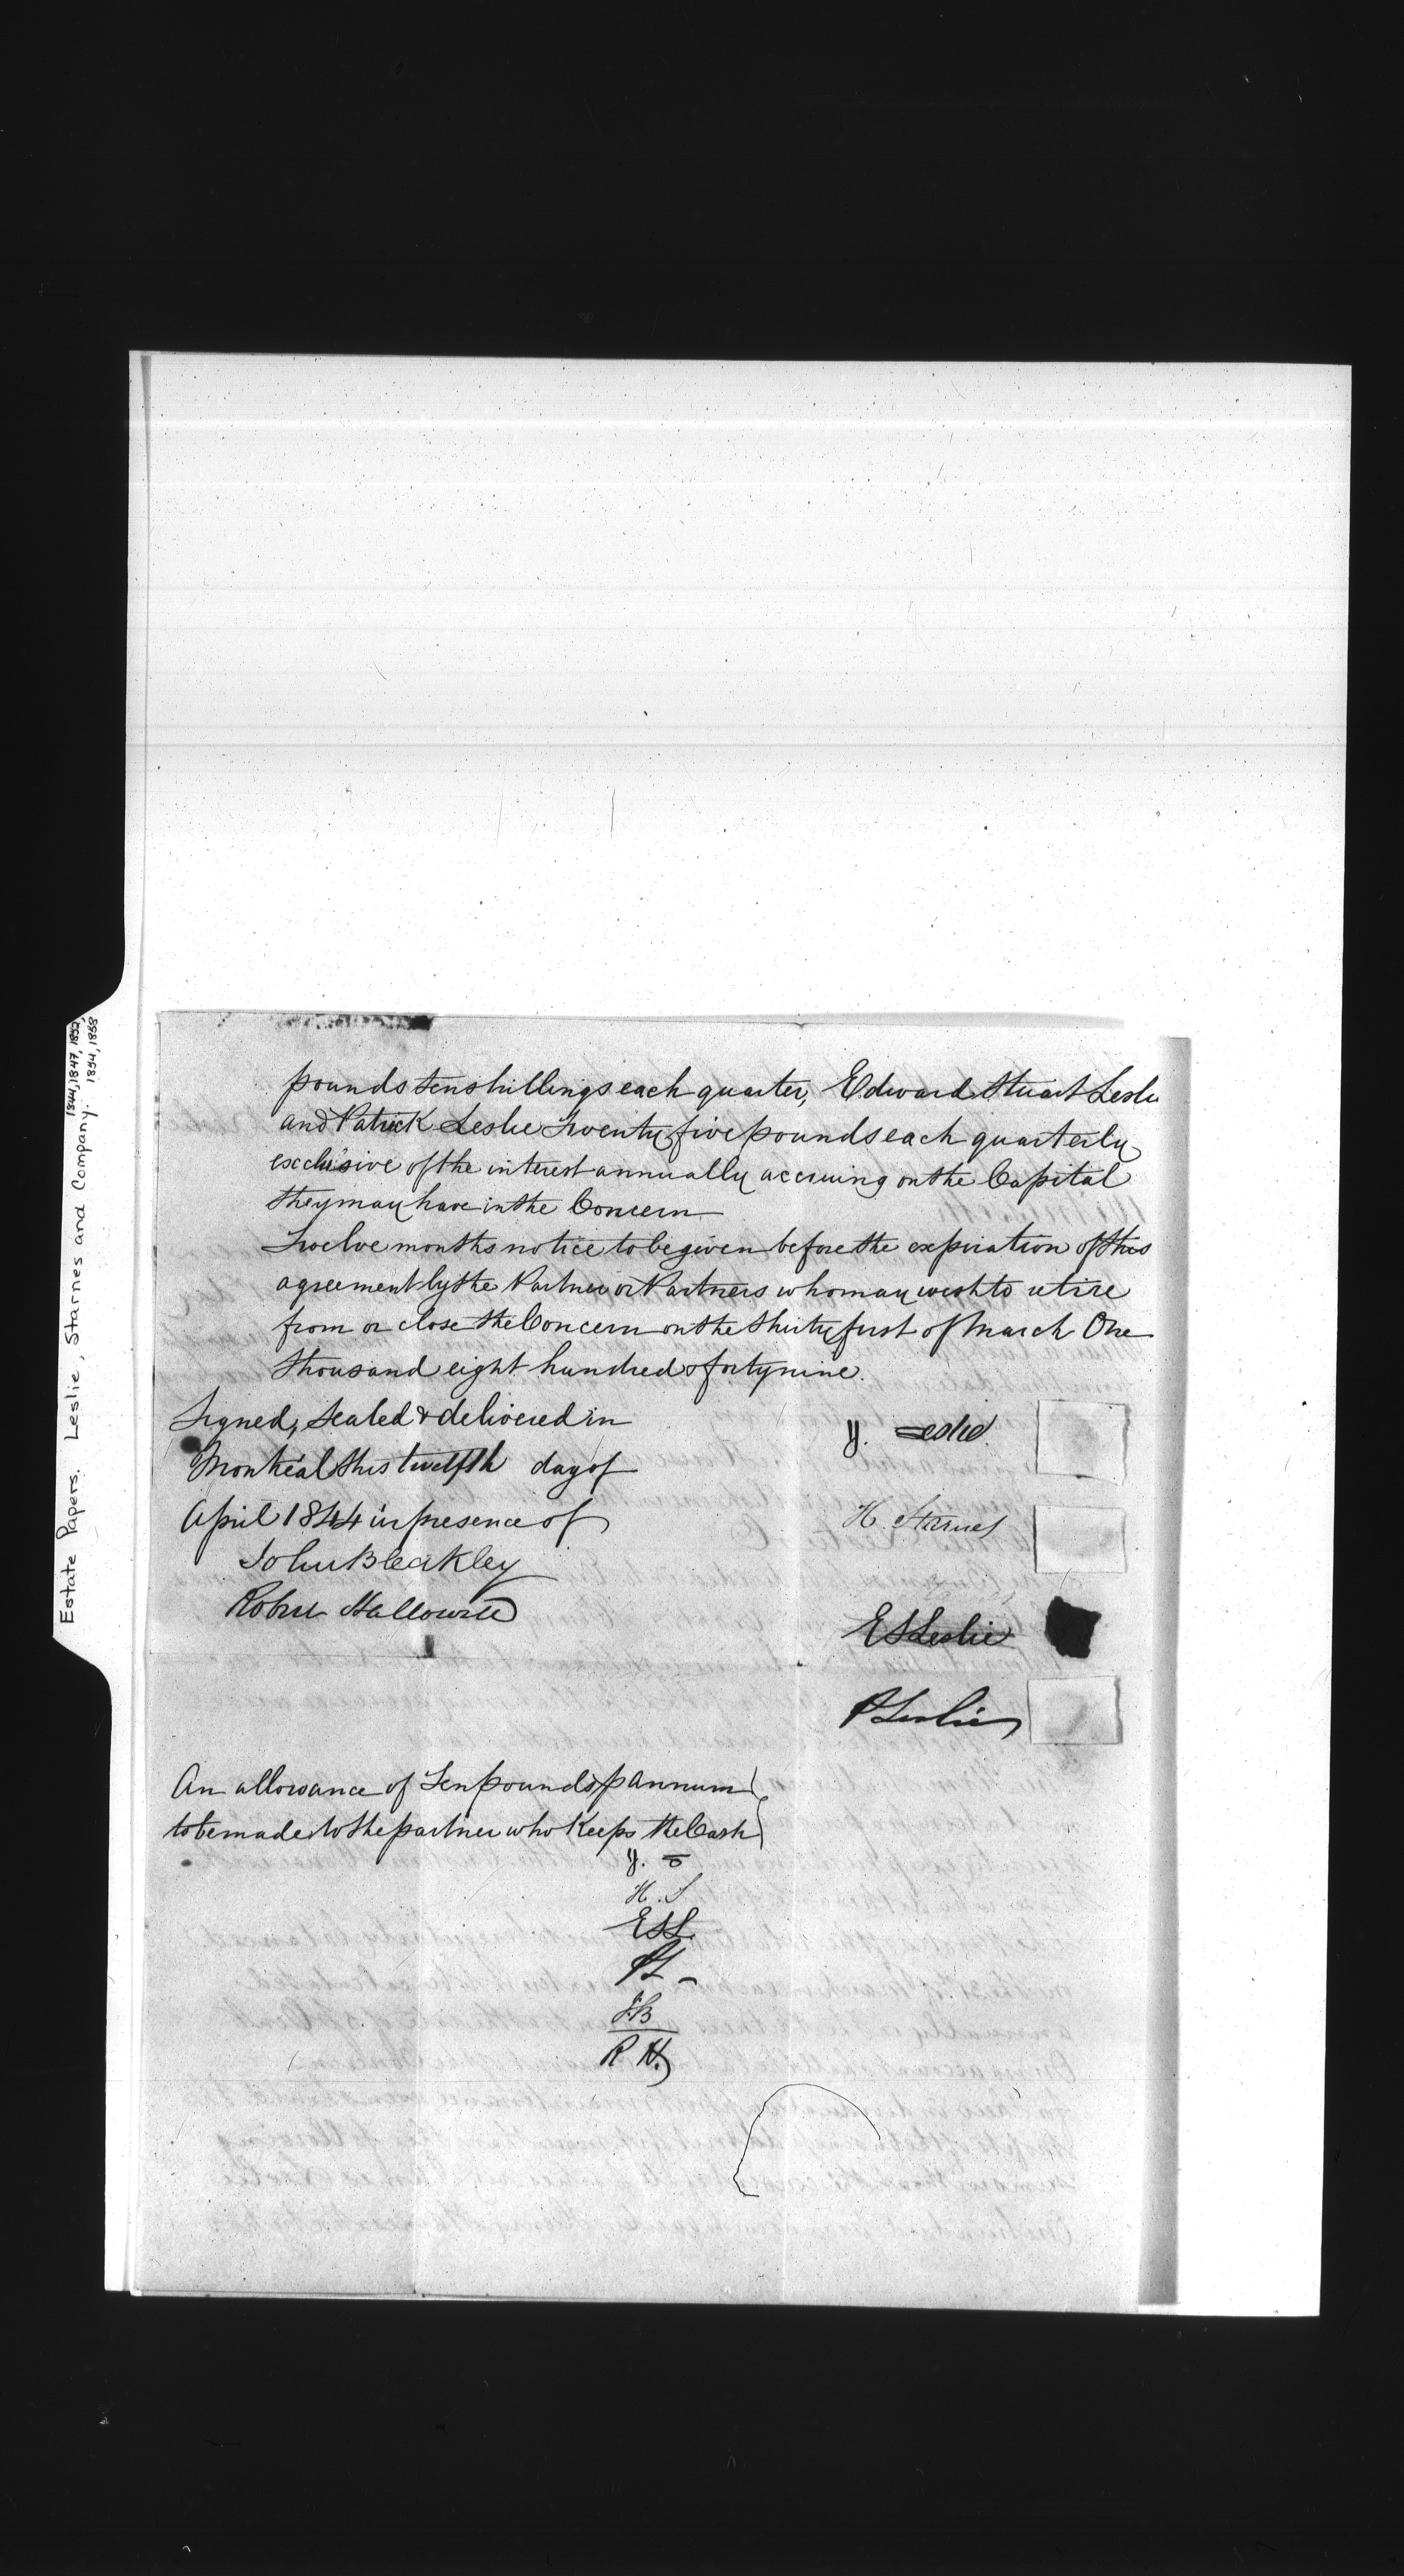 Estate Papers. Leslie, Starnes and Company. 1844, 1847, 1852,
1854, 1858
pounds ten shillings each quarter, Edward Stuart Leslie
and Patrick Leslie Twenty five pounds each quarterly
exclusive of the interest annually accruing on the Capital
they may have in the Concern
Twelve months notice to be given before the expiration of this
agreement by the Partner or Partners who may wish to retire
from or close the Concern on the thirty first of March One
thousand eight hundred & forty nine.
Signed, Sealed & delivered in
Montreal this twelfth day of
April 1844 in presence of
John Bleakley
Robert Hallowell
J. Leslie.
H. Starnes
E S Leslie
P Leslie
An allowance of Ten pounds p annum
to be made to the partner who Keeps the Cash
H. S
ESL.
PL
J.B
R H.